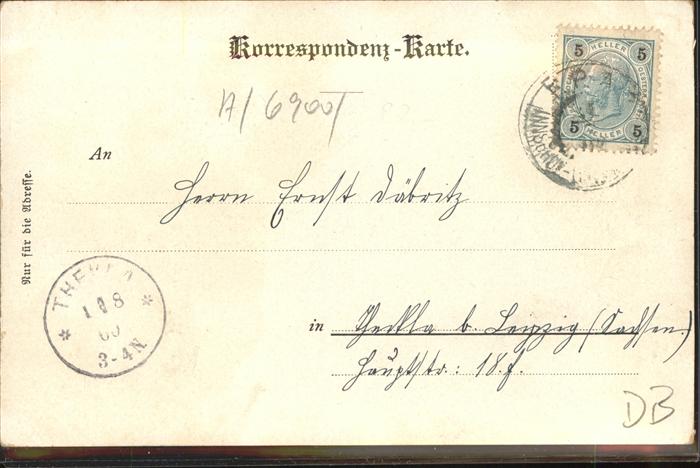 Korrespondenz-Karte.
5 HELLER 5
5 HELLER 5
A/6900/
An
Herrn Ernst Däbritz
Nur für die Adresse.
THEKLA
1 8
3-4N
in Theckla b. Leipzig (Sachsen)
Hauptstr: 18.f.
DB